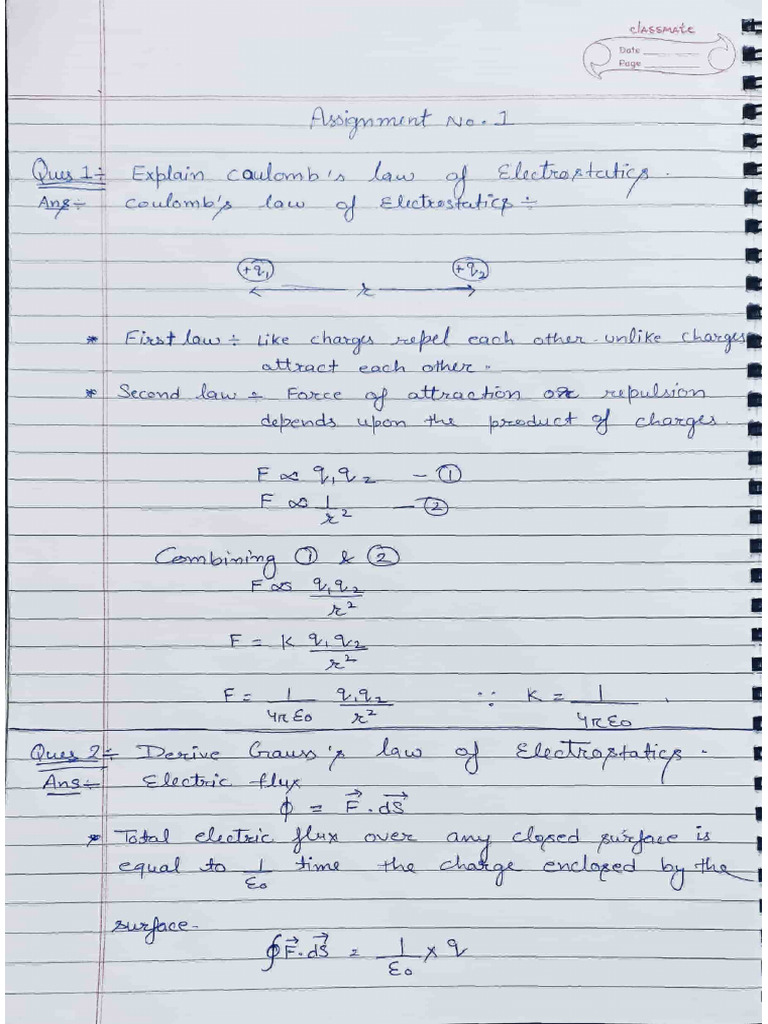 classmate
Date
Page
Assignment No. 1
Ques 1÷ Explain Coulomb's law of Electrostatics.
Ans÷ Coulomb's law of Electrostatics ÷
+q₁ +q₂
r
* First law ÷ Like charges repel each other. unlike charges
attract each other.
* Second law ÷ Force of attraction or repulsion
depends upon the product of charges.
F ∝ q₁q₂ — ①
F ∝ 1/r² — ②
Combining ① & ②
F ∝ q₁q₂/r²
F = K q₁q₂/r²
F = 1/4πε₀ q₁q₂/r² ∵ K = 1/4πε₀ .
Ques 2÷ Derive Gauss's law of Electrostatics.
Ans÷ Electric flux
ϕ = F⃗.dS⃗
* Total electric flux over any closed surface is
equal to 1/ε₀ time the charge enclosed by the
surface.
∮F⃗.dS⃗ = 1/ε₀ × q